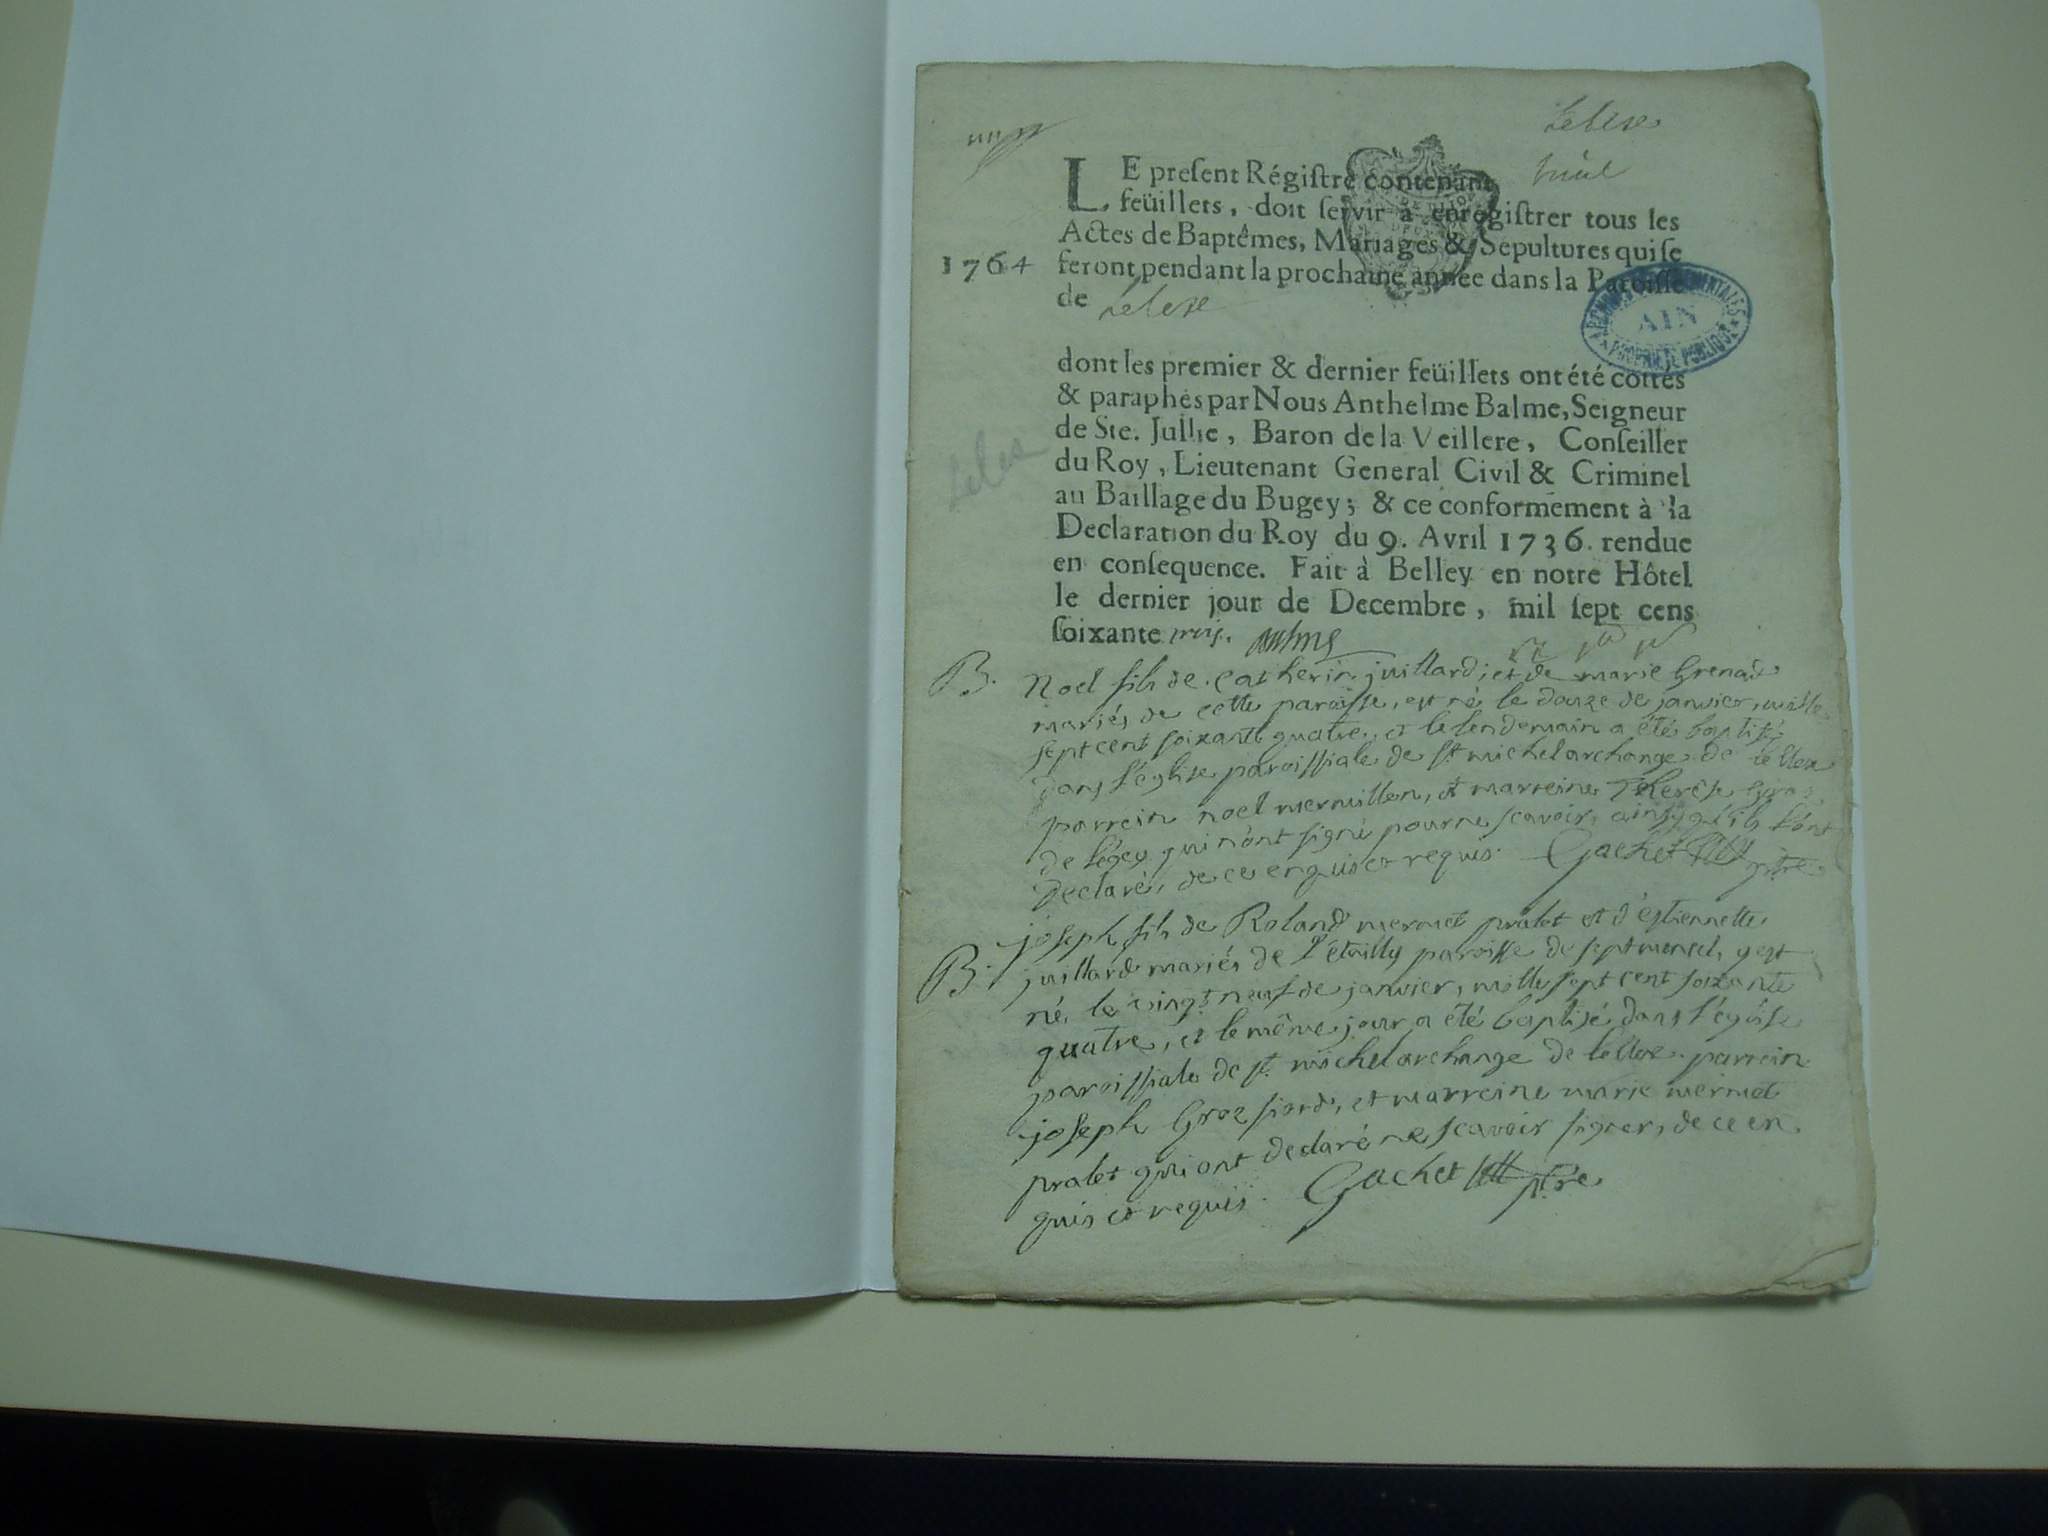 Lelex
huit
LE present Régistre contenant
feüillets, doit servir à enregistrer tous les
Actes de Baptêmes, Mariages & Sepultures qui se
1764 feront pendant la prochaine année dans la Paroisse
de Lelex
ARCHIVES DEPARTEMENTALES
AIN
PROPRIETE PUBLIQUE
dont les premier & dernier feüillets ont été cottés
& paraphés par Nous Anthelme Balme, Seigneur
de Ste. Jullie, Baron de la Veillere, Conseiller
du Roy, Lieutenant General Civil & Criminel
au Baillage du Bugey; & ce conformement à la
Declaration du Roy du 9. Avril 1736. rendue
en consequence. Fait à Belley en notre Hôtel
le dernier jour de Decembre, mil sept cens
soixante trois. Balme
Lelex
B. Noel fils de catherin juillard, et de marie Grenard
mariés de cette paroisse, est né le douze de janvier, mille
sept cent soixante quatre, et le lendemain a été baptisé
dans l'eglise paroissiale de st. michel archange de lellex
parrein noel mermillon, et marreine Therese Gros
qui n'ont signé pour ne scavoir, ainsy qu'ils l'ont
declaré, de ce enquis et requis. Gachet ptre
joseph fils de Roland mermet pralet et d'estiennette
B. juillard mariés de paroisse de septmoncel, y est
né le vingt neuf de janvier, mille sept cent soixante
quatre, et le même jour a été baptisé dans l'église
paroissiale de st. michel archange de lellex. parrein
joseph Groz et marreine marie mermet
pralet qui ont declaré ne scavoir signer, de ce en
quis et requis. Gachet ptre